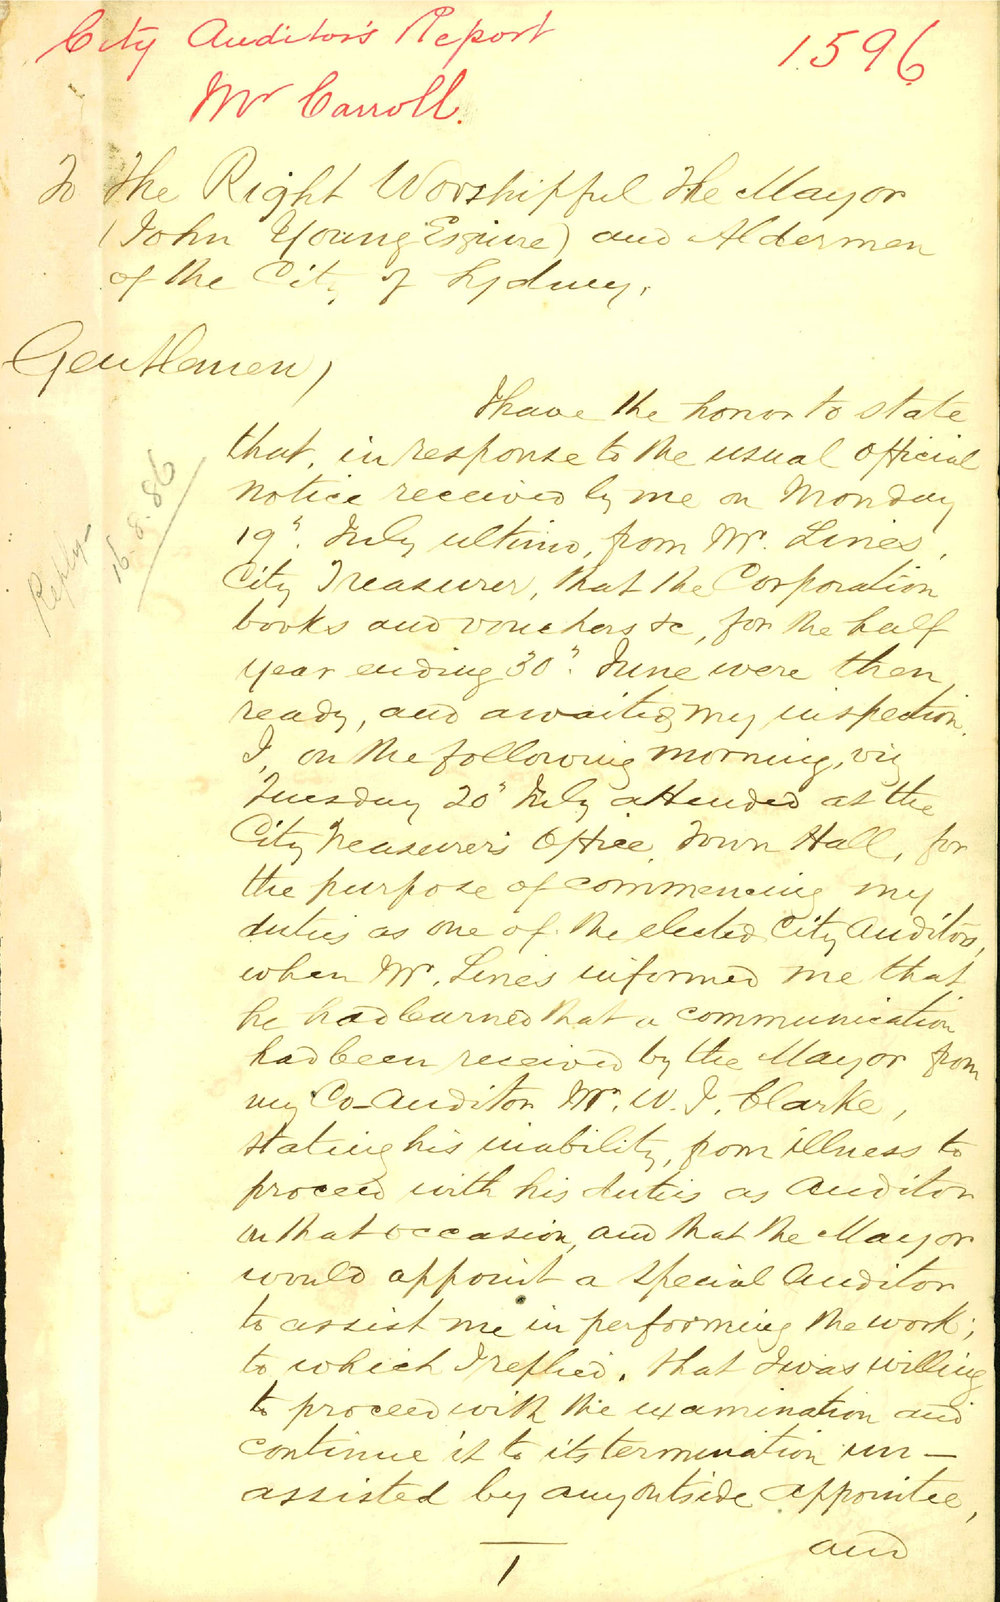 City Auditor's Report
1596
Mr Carroll.
To The Right Worshipful The Mayor
(John Young Esquire) and Aldermen
of the City of Sydney.
Gentlemen,
I have the honor to state
that, in response to the usual official
notice received by me on Monday
19". July ultimo, from Mr. Lines,
City Treasurer, that the Corporation
books and vouchers &c, for the half
year ending 30". June were then
ready, and awaiting my inspection.
I, on the following morning, viz
Tuesday 20" July attended at the
City Treasurer's Office, Town Hall, for
the purpose of commencing my
duties as one of the elected City Auditors,
when Mr. Lines informed me that
he had learned that a communication
had been received by the Mayor from
my Co-Auditor Mr. W. J. Clarke,
stating his inability, from illness to
proceed with his duties as Auditor
on that occasion, and that the Mayor
would appoint a special Auditor
to assist me in performing the work;
to which I replied, that I was willing
to proceed with the examination and
continue it to its termination un-
assisted by any outside appointee,
and
1
Reply-
16.8.86